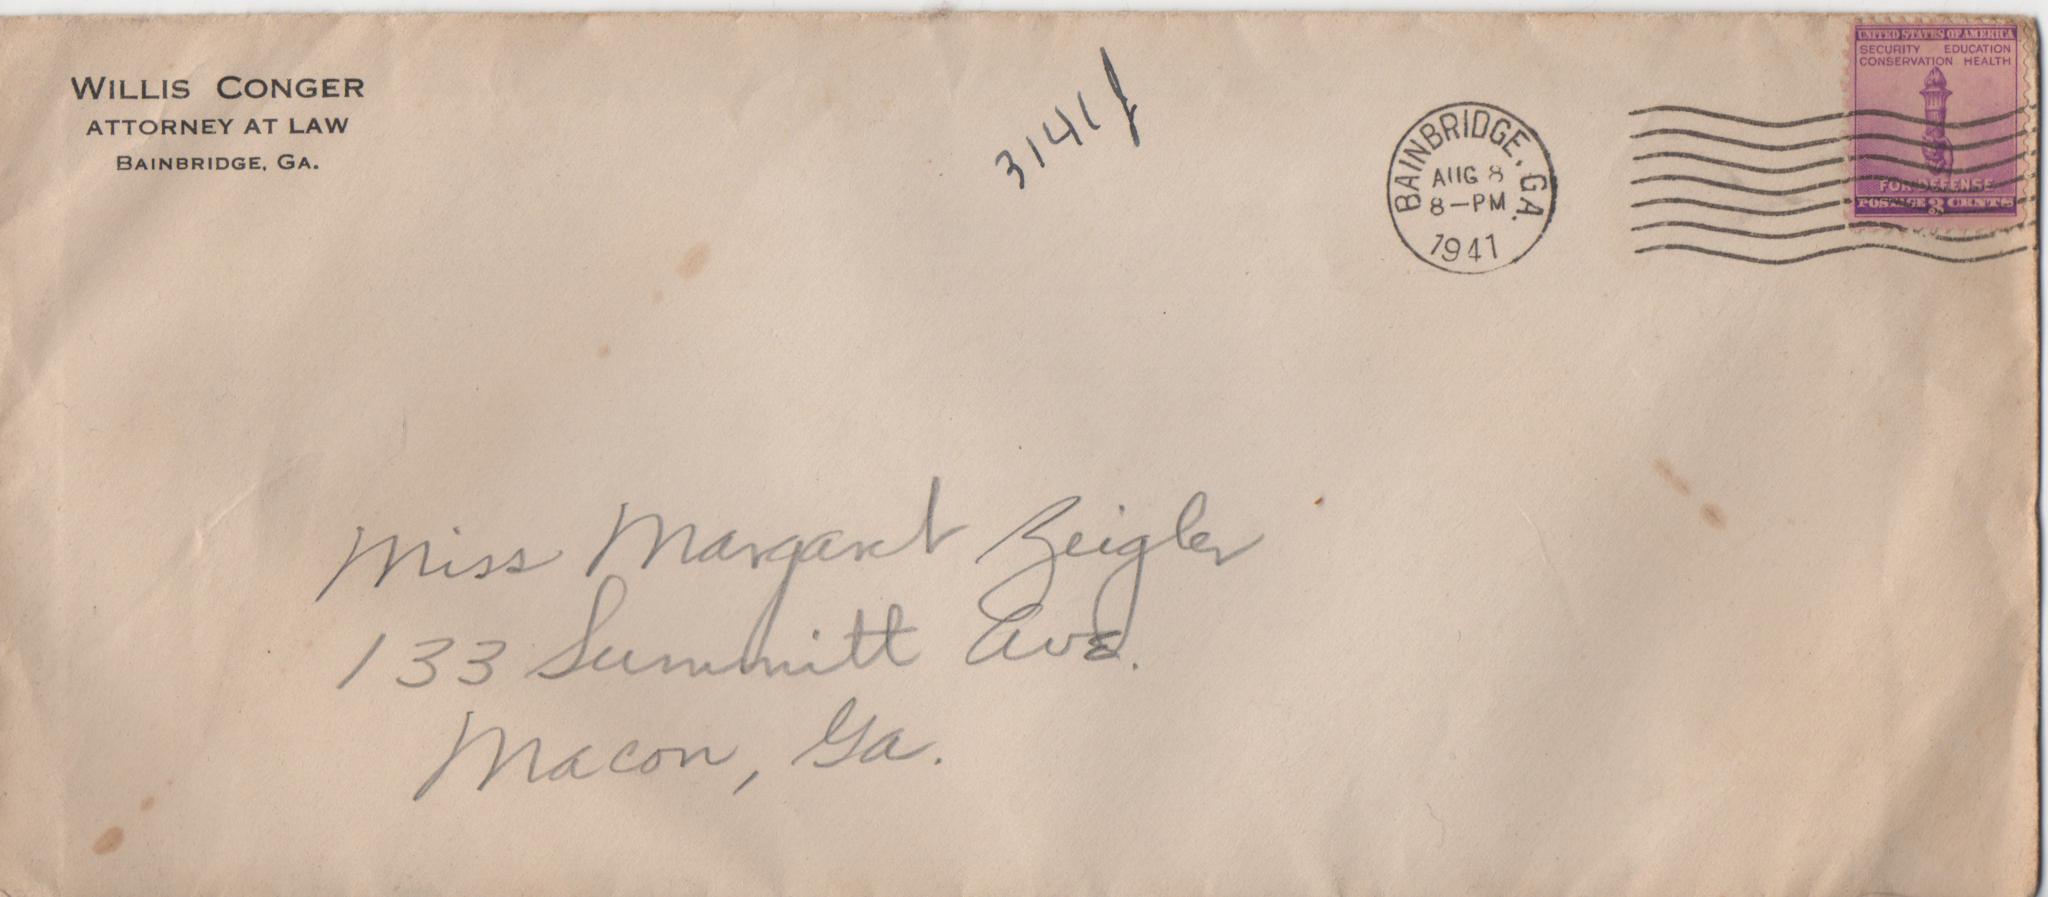 WILLIS CONGER
ATTORNEY AT LAW
BAINBRIDGE, GA.
3141 f
BAINBRIDGE, GA.
AUG 8
8-PM
1941
UNITED STATES OF AMERICA
SECURITY EDUCATION
CONSERVATION HEALTH
FOR DEFENSE
POSTAGE 3 CENTS
Miss Margaret Zeigler
133 Summitt Ave.
Macon, Ga.